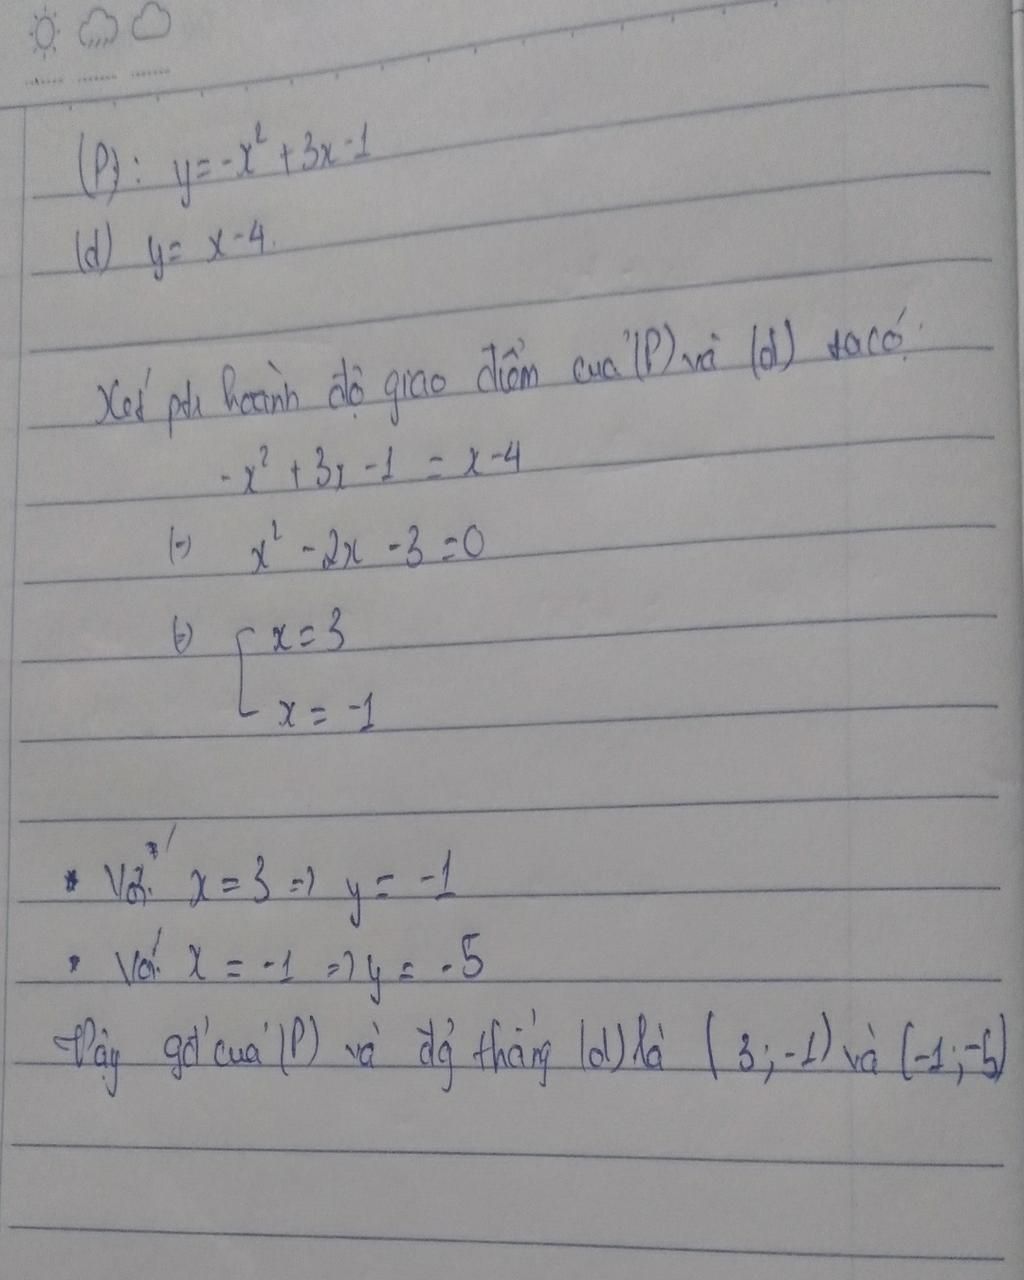 (P): y = -x² + 3x - 1
(d) y = x - 4.
Xét pt hoành độ giao điểm của (P) và (d) ta có:
-x² + 3x - 1 = x - 4
(=) x² - 2x - 3 = 0
(=) [ x = 3
x = -1
* Với x = 3 => y = -1
* Với x = -1 => y = -5
Vậy gđ của (P) và thẳng (d) là (3; -1) và (-1; -5)